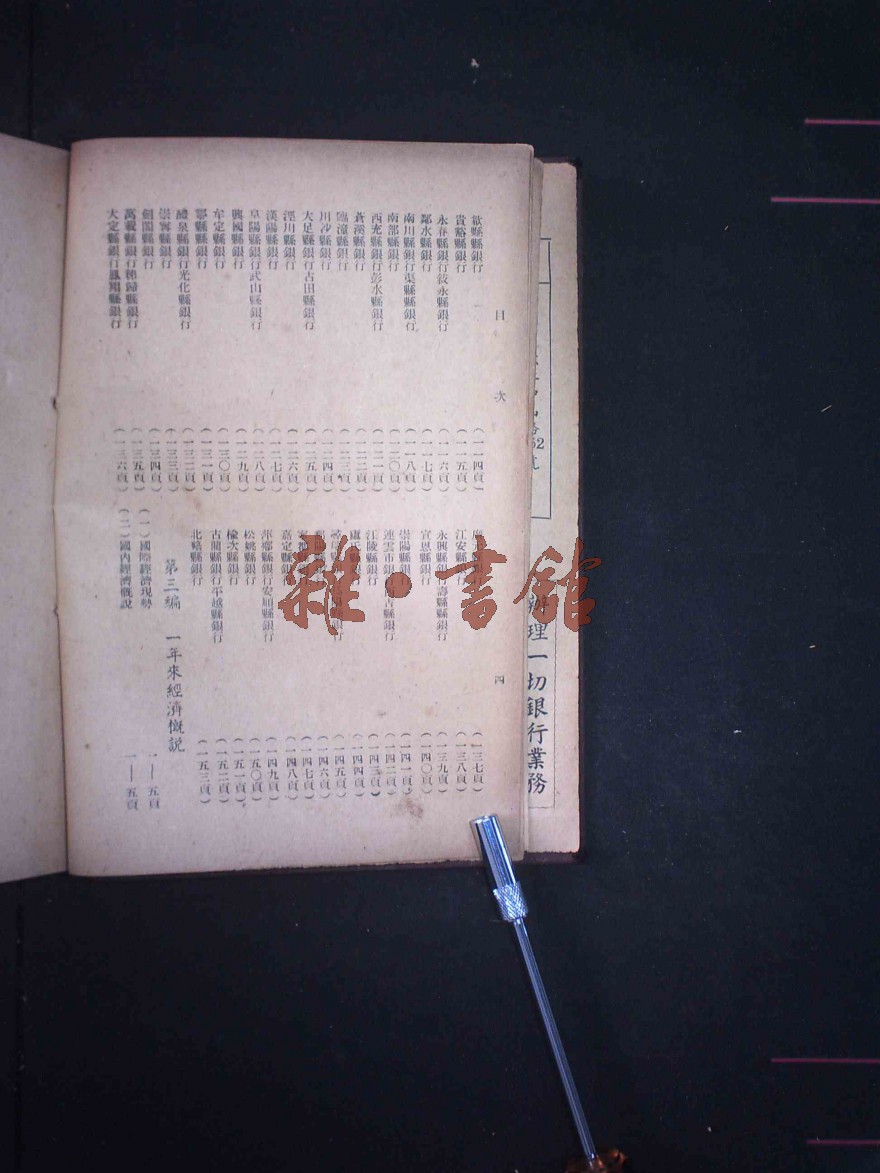 目 次 四
歙縣縣銀行 (一一四頁)
貴谿縣銀行 (一一五頁)
永春縣銀行敍永縣銀行 (一一六頁)
鄰水縣銀行 (一一七頁)
南川縣銀行渠縣縣銀行 (一一八頁)
南部縣銀行 (一二〇頁)
西充縣銀行彭水縣銀行 (一二一頁)
蒼溪縣銀行 (一二二頁)
臨潼縣銀行 (一二三頁)
川沙縣銀行 (一二四頁)
大足縣銀行古田縣銀行 (一二五頁)
涇川縣銀行 (一二六頁)
漢陽縣銀行 (一二七頁)
阜陽縣銀行武山縣銀行 (一二八頁)
興國縣銀行 (一二九頁)
牟定縣銀行 (一三〇頁)
鄠縣縣銀行 (一三一頁)
醴泉縣銀行光化縣銀行 (一三二頁)
崇寗縣銀行 (一三三頁)
劍閣縣銀行 (一三四頁)
萬載縣銀行秭歸縣銀行 (一三五頁)
大定縣銀行鳳翔縣銀行 (一三六頁)
銀行 (一三七頁)
江安縣銀行 (一三八頁)
永興縣銀行 壽縣銀行 (一三九頁)
宣恩縣銀行 (一四〇頁)
崇陽縣銀行 (一四一頁)
連雲市銀行 古縣銀行 (一四二頁)
江陵縣銀行 (一四三頁)
盧氏縣銀行 (一四四頁)
縣銀行 (一四五頁)
(一四六頁)
(一四七頁)
嘉定縣銀行 (一四八頁)
萍鄉縣銀行安順縣銀行 (一四九頁)
松姚縣銀行 (一五〇頁)
榆次縣銀行 (一五一頁)
古龍縣銀行平越縣銀行 (一五二頁)
北碚縣銀行 (一五三頁)
第三編 一年來經濟概說
(一)國際經濟現勢 一—五頁
(二)國內經濟概說 一—五頁
雜·書館
辦理一切銀行業務